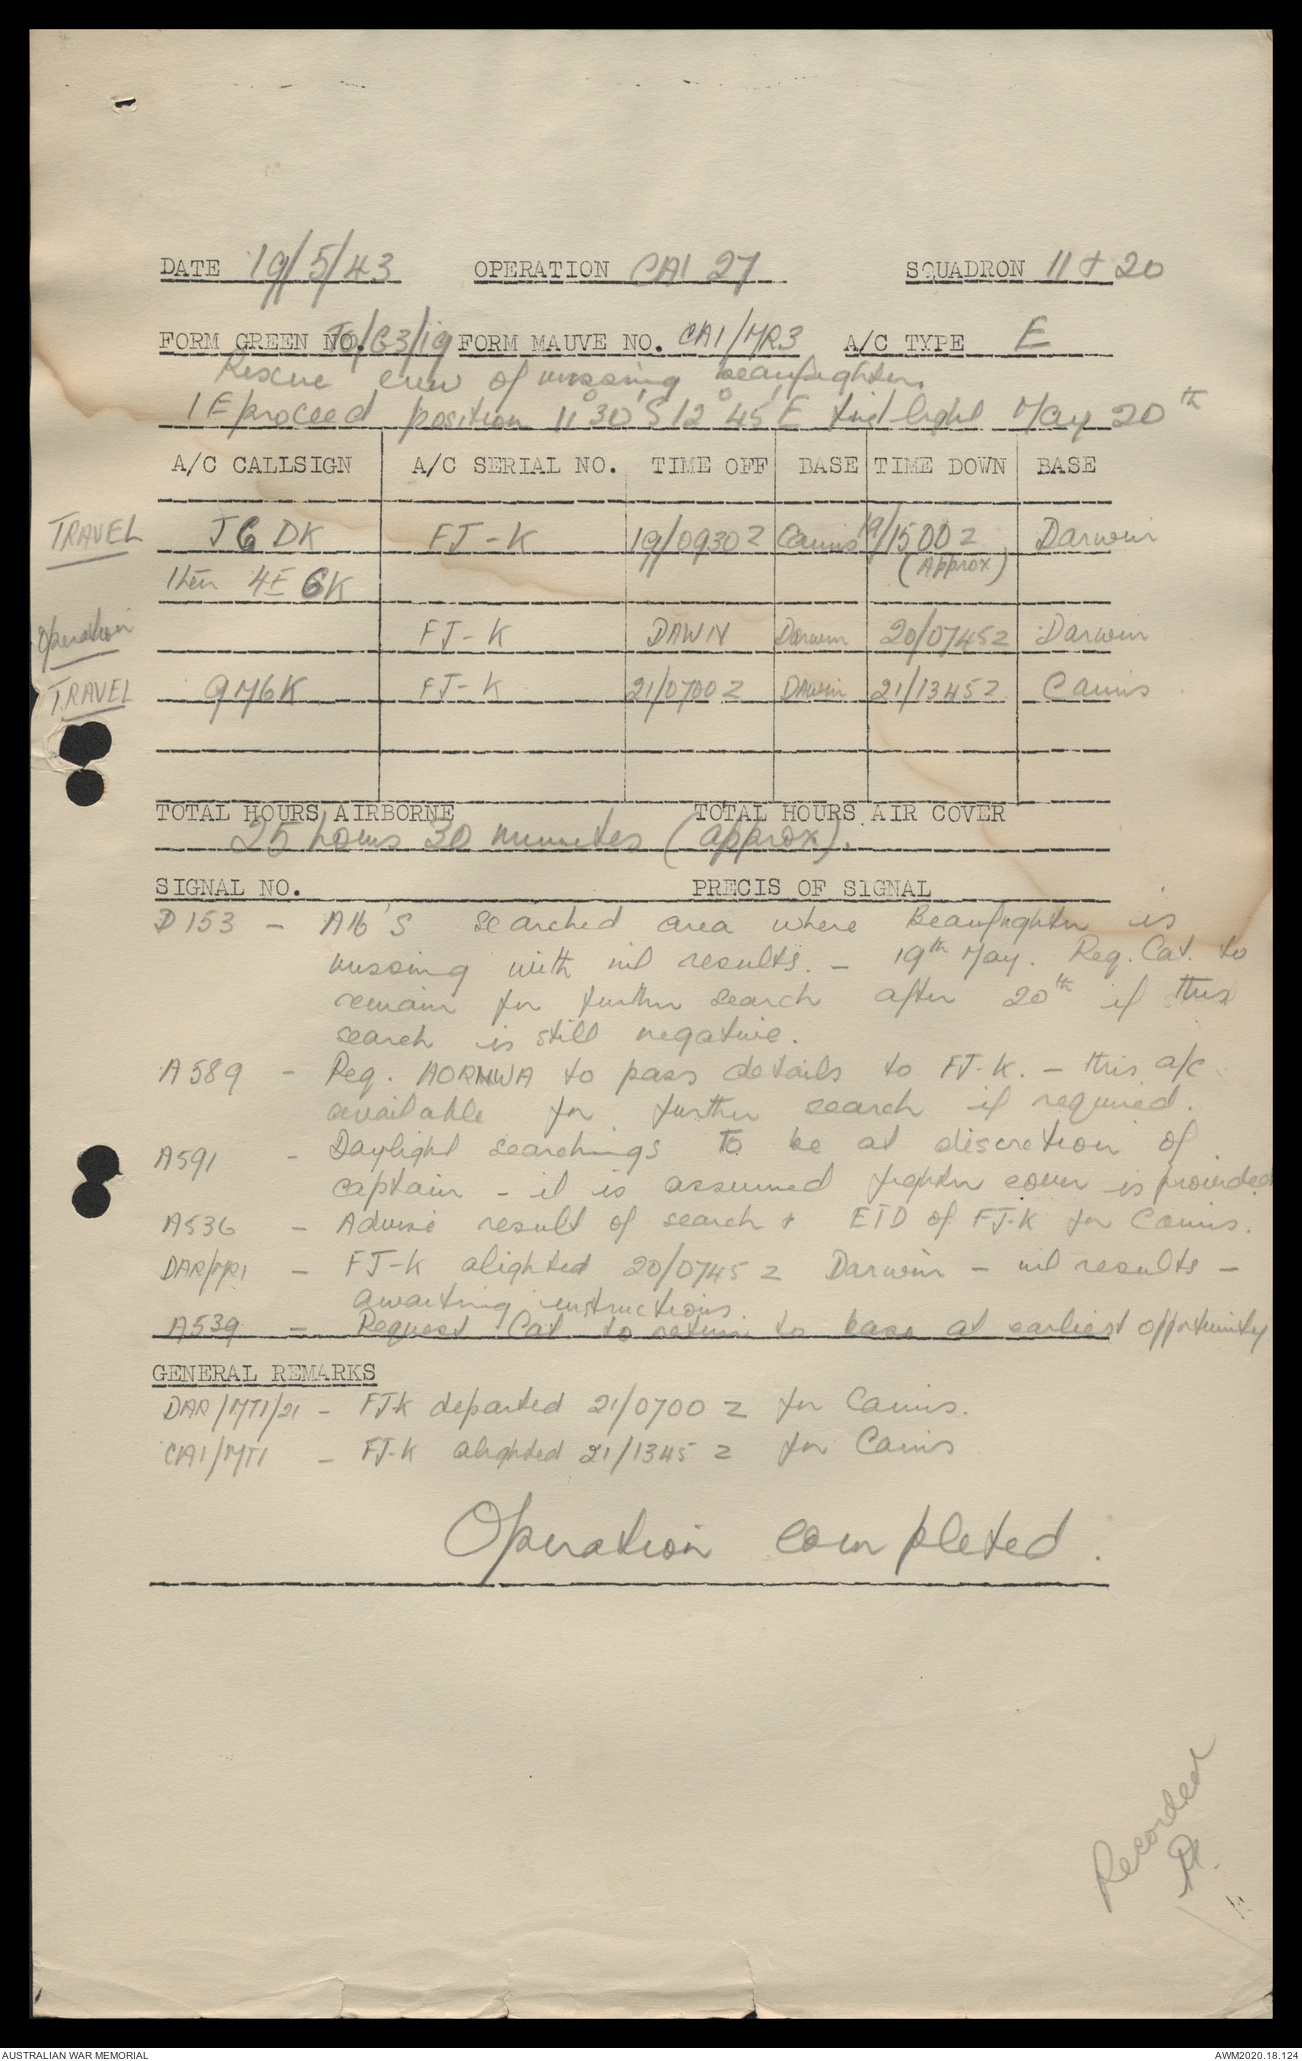 DATE 19/5/43 OPERATION CAI 27 SQUADRON 11 & 20
FORM GREEN NO. /G3/19 FORM MAUVE NO. CAI/MR3 A/C TYPE E
Rescue crew of missing beaufighter.
1 E proceed position 11°30'S 12°45'E first light May 20th
A/C CALLSIGN A/C SERIAL NO. TIME OFF BASE TIME DOWN BASE
TRAVEL J6DK FJ-K 19/0930Z Cairns 19/1500Z Darwin
(Approx)
then 4E 6K
Operation FJ-K DAWN Darwin 20/0745Z Darwin
TRAVEL 9M6K FJ-K 21/0700Z Darwin 21/1345Z Cairns
TOTAL HOURS AIRBORNE TOTAL HOURS AIR COVER
25 hours 30 minutes (approx).
SIGNAL NO. PRECIS OF SIGNAL
D153 - A16'S searched area where Beaufighter is
missing with nil results. - 19th May. Req. Cat. to
remain for further search after 20th if this
search is still negative.
A589 - Req. AORNWA to pass details to FJ-K. - this a/c
available for further search if required.
A591 - Daylight searchings to be at discretion of
captain - it is assumed fighter cover is provided
A536 - Advise result of search & ETD of FJ-K for Cairns.
DAR/MR1 - FJ-K alighted 20/0745 Z Darwin - nil results -
awaiting instructions.
A539 - Request Cat to return to base at earliest opportunity
GENERAL REMARKS
DAR/MT1/21 - FJ-K departed 21/0700 Z for Cairns.
CAI/MT1 - FJ-K alighted 21/1345 Z for Cairns
Operation completed.
Recorded
AUSTRALIAN WAR MEMORIAL AWM2020.18.124